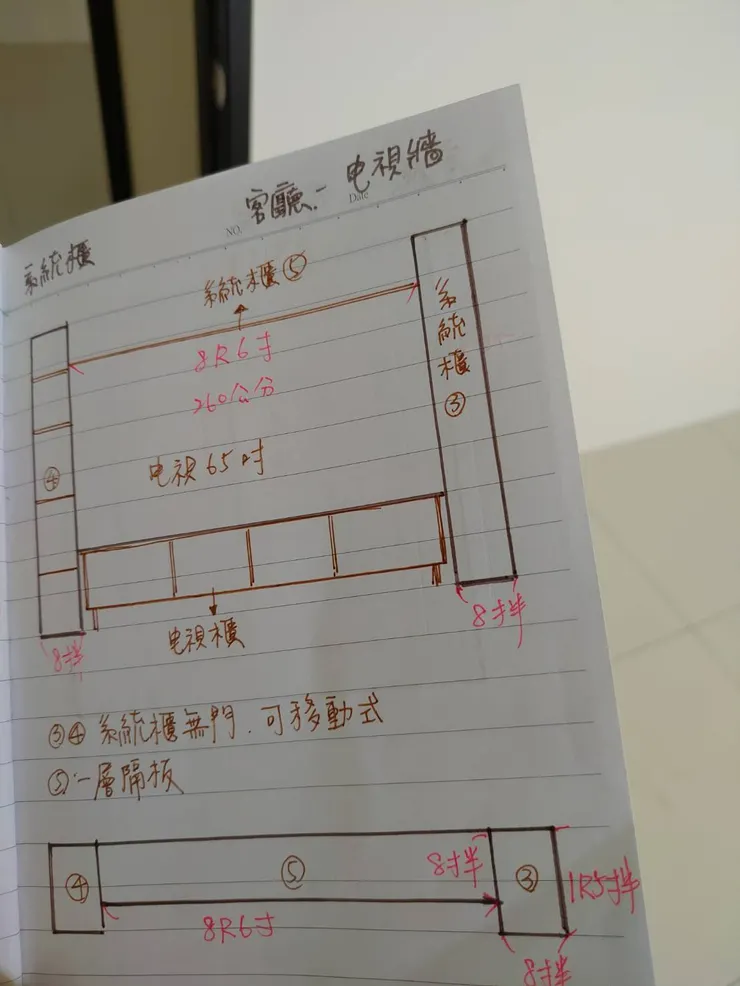 客廳.- 电視牆
NO.
Date
系統櫃
系統櫃⑤
8尺6寸
260公分
系統櫃③
④
电視65吋
8寸半
8寸半
电視櫃
③④ 系統櫃無門. 可移動式
⑤一層隔板
④
⑤
8寸半
③
1尺5寸半
8尺6寸
8寸半